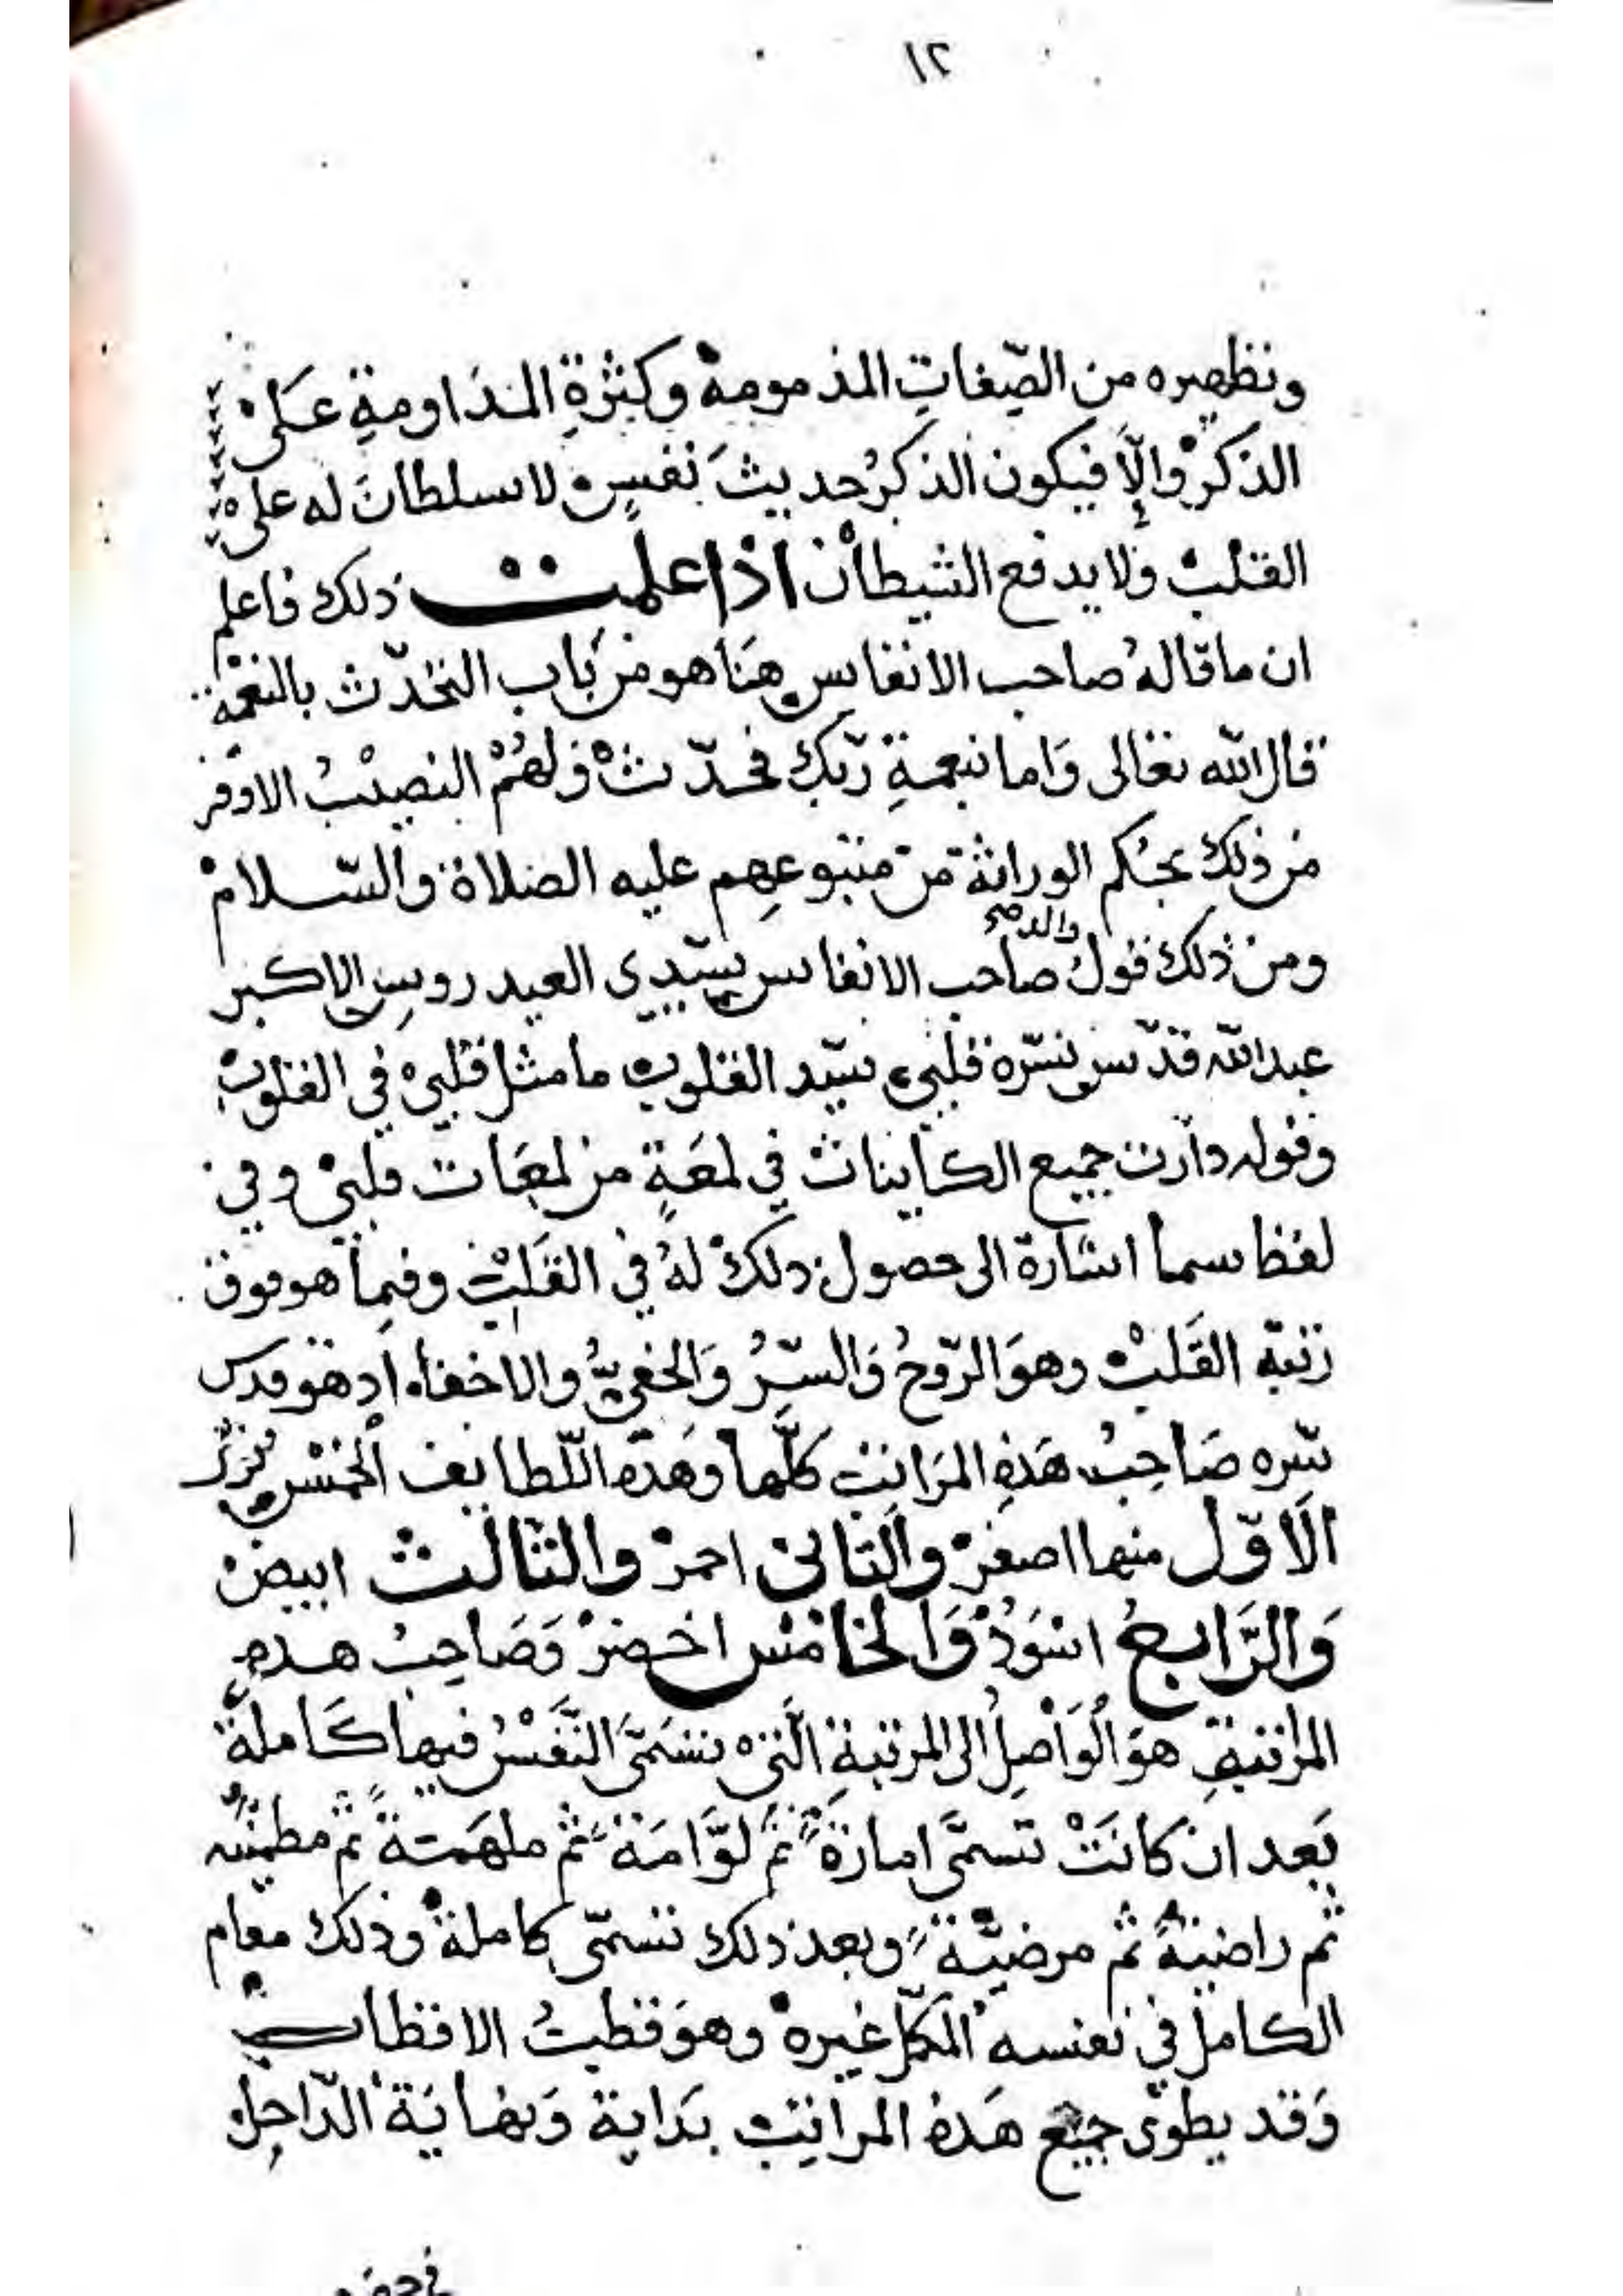 ١٢
وتطهيره من الصّفاتِ المذمومة وكثرةِ المداومةِ على
الذكر وإلّا فيكون الذكرُ حديثَ نفسٍ لا سلطانَ له على
القلب ولا يدفع الشيطان اذا علمت ذلك فاعلم
ان ما قالهُ صاحب الانفاس هنا هو من باب التحدّث بالنعمة
قال الله تعالى وَاما بنعمةِ ربّك فحدّث ولهُمْ النصيبُ الاوفر
من ذلك بحُكم الوراثة من متبوعهم عليه الصلاة والسّلام
ومن ذلك قولُ صاحب الانفاس سيّدي العيدروس الاكبر
عبدالله قدّس سرّه قلبي سيّد القلوب ما مثل قلبي في القلوب
وقوله دارت جميع الكاينات في لمعَةٍ من لمعَات قلبي وفي
لفظ سما اشارة الى حصول ذلك لهُ في القَلب وفيما هو فوق
رتبة القَلب وهوَ الرّوحُ وَالسّرُ وَالخفيُّ والاخفاء اذ هو قدس
سره صَاحبُ هَذهِ المرَاتب كلّها وهَذه اللّطايف الخمْس
الاوّل منها اصفر والثاني احمر والثالث ابيض
وَالرَّابعُ اسْوَدْ وَالخامس اخضر وَصَاحبُ هذه
المراتب هوَ الْوَاصِلُ الى المرتبةِ الّتي تسَمَّى النَّفَسُ فيها كَاملةً
بَعد ان كانَتْ تسمَّى امارَةً ثم لوَّامَةً ثم ملهَمةً ثم مطمئنه
ثم راضيةً ثم مرضيّة وبعد ذلك تسمّى كاملة وذلك مقام
الكامل في نفسه المكمّل غيره وهوَ قطبُ الاقطاب
وَقد يطوى جميع هَذه المراتب بدَاية وَنهايَة الدّاخِل